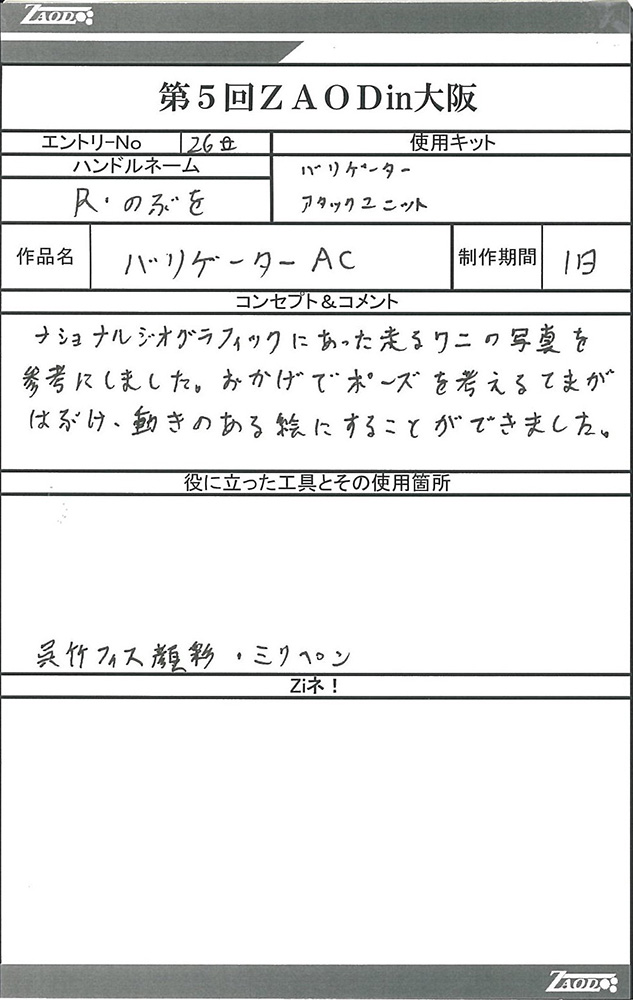 ZAOD
第5回ZAODin大阪
エントリーNo 26
使用キット
ハンドルネーム
バリゲーター
R・のぶを
アタックユニット
作品名 バリゲーターAC 制作期間 1日
コンセプト＆コメント
ナショナルジオグラフィックにあった走るワニの写真を
参考にしました。おかげでポーズを考えるてまが
はぶけ、動きのある絵にすることができました。
役に立った工具とその使用箇所
呉竹フィス顔彩・ミリペン
Ziネ！
ZAOD